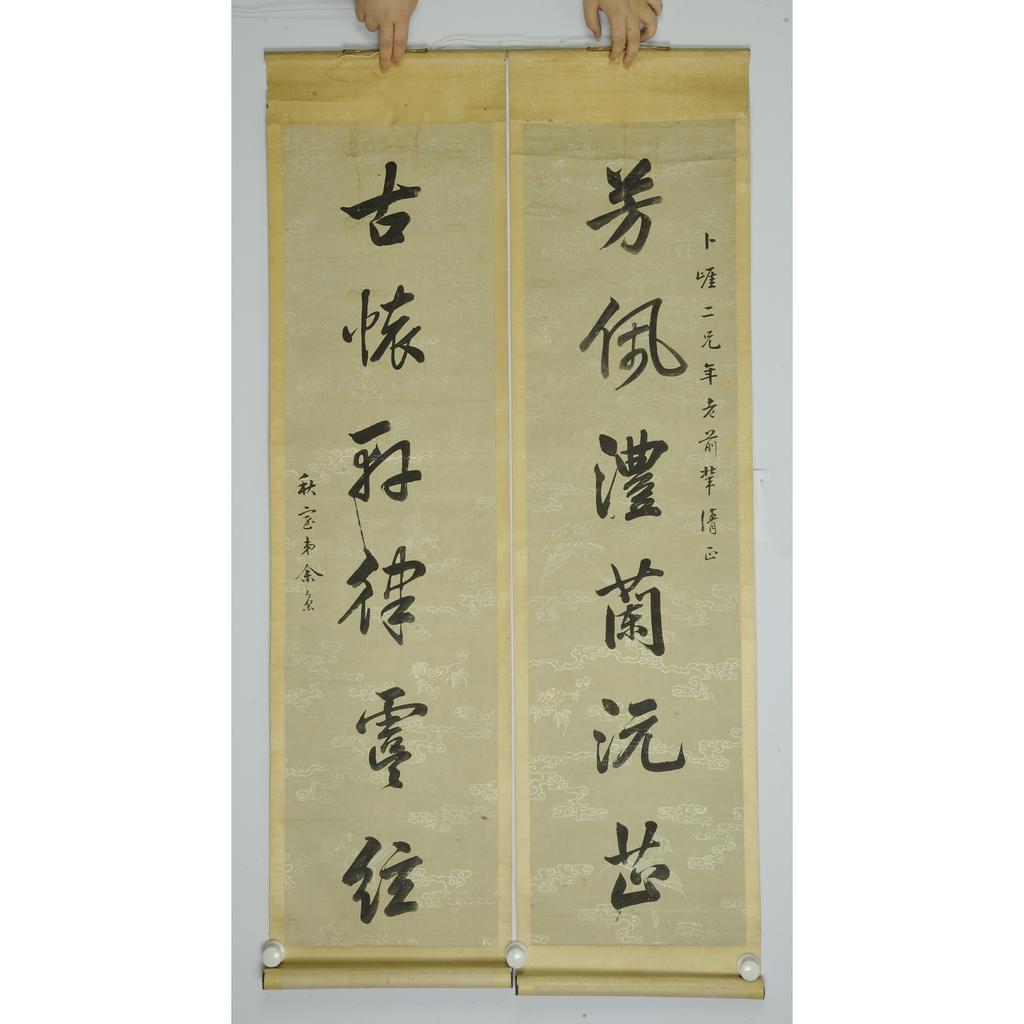 卜崕二兄年老前輩清正
芳佩澧蘭沅芷
古懷律經
秋室弟余集